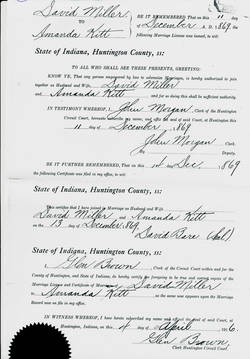 David Miller
TO
Amanda Kitt
BE IT REMEMBERED, That on this 11 day
of December A. D. 1869, the
following Marriage License was issued, to-wit:
State of Indiana, Huntington County, ss:
TO ALL WHO SHALL SEE THESE PRESENTS, GREETING:
KNOW YE, That any person empowered by law to solemnize Marriages, is hereby authorized to join
together as Husband and Wife David Miller
and Amanda Kitt and for so doing this shall be sufficient authority.
IN TESTIMONY WHEREOF, I John Morgan, Clerk of the Huntington
Circuit Court, hereunto subscribe my name, and affix the seal of said Court, at Huntington, this
11 day of December, 1869
John Morgan Clerk,
Deputy.
BE IT FURTHER REMEMBERED, That on this Dec. 1869
the following Certificate was filed in my office, to-wit:
State of Indiana, Huntington County, ss:
This certifies that I have joined in Marriage as Husband and Wife
David Miller and Amanda Kitt
on the 13 day of December, 1869.
David Bare (Seal)
State of Indiana, Huntington County, ss:
I, Glen Brown, Clerk of the Circuit Court within and for the
County of Huntington, and State of Indiana, do hereby certify the foregoing to be true and correct copies of the
Marriage License and Certificate of Marriage David Miller
to Amanda Kitt as the same now appears upon the Marriage
Record now on file in my office.
IN WITNESS WHEREOF, I may hereunto set my name and affix the seal of said Court, at
Huntington, Indiana, this 4 day of April
Glen Brown,
Clerk Huntington Circuit Court